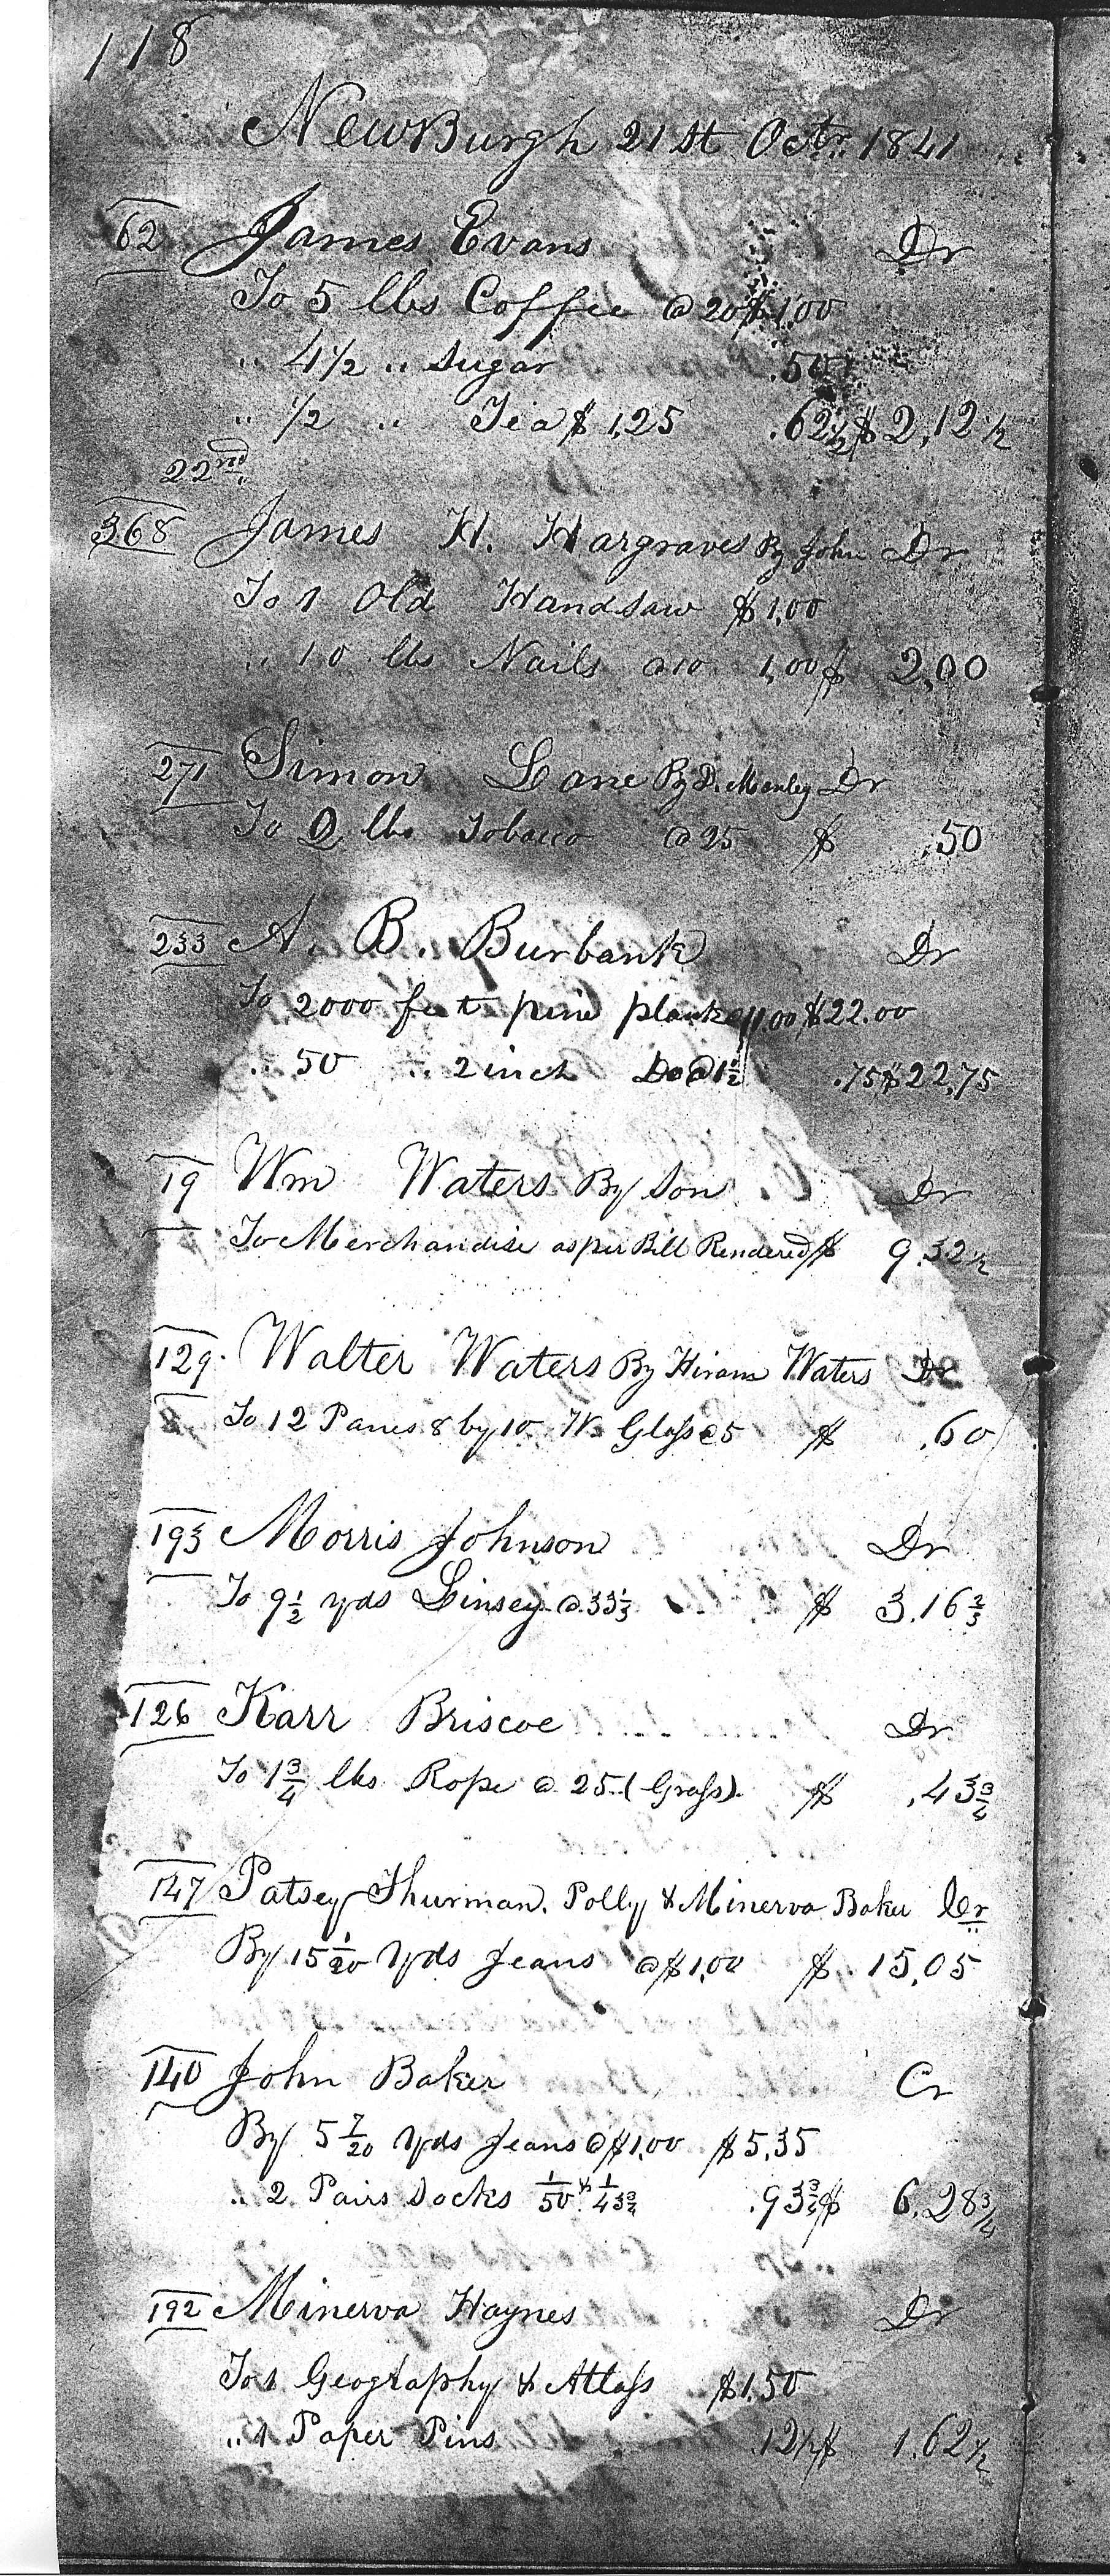 118
NewBurgh 21st Octr. 1841
62 James Evans Dr
To 5 lbs Coffee @ 20 $1,00
" 4½ " Sugar .50
" ½ " Tea $1,25 .62½ $2,12½
22nd
368 James H. Hargraves By John Dr
To 1 Old Handsaw $1,00
" 10 lbs Nails @10 1,00 $ 2,00
271 Simon Lane By D. Manley Dr
To 2 lbs Tobacco @ 25 $ .50
233 A. B. Burbank Dr
To 2000 feet pine plank @ 11,00 $22.00
" 50 " 2 inch Do @ 1½ .75 $22,75
19 Wm Waters By Son Dr
To Merchandise as per Bill Rendered $ 9.32½
129. Walter Waters By Hiram Waters Dr
To 12 Panes 8 by 10 W. Glass @ 5 $ .60
193 Morris Johnson Dr
To 9½ yds Linsey @ 33⅓ $ 3.16⅔
126 Karr Briscoe Dr
To 1¾ lbs Rope @ 25 (Grass) $ .43¾
147 Patsey Thurman, Polly & Minerva Baker Dr
By 15 1/20 Yds Jeans @ $1,00 $ 15,05
140 John Baker Cr
By 5 7/20 Yds Jeans @ $1,00 $5,35
" 2 Pairs Socks 1/50 & 1/43¾ .93¾ $ 6.28¾
192 Minerva Haynes Dr
To 1 Geography & Atlass $1,50
" 1 Paper Pins .12½ $ 1.62½